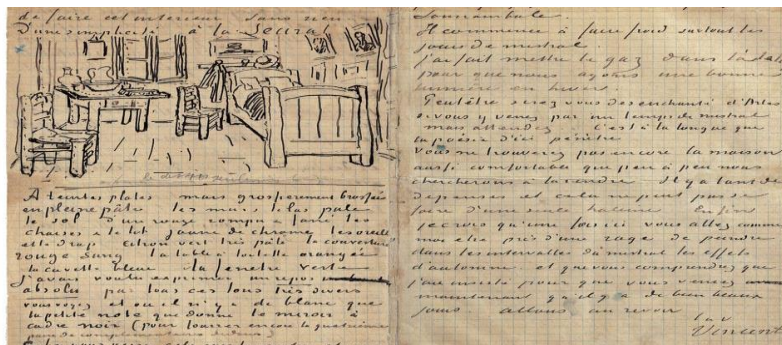 de faire cet interieur Sans rien
D'une simplicité à la Seurat
A teintes plates mais grossierement brossées
en pleine pâte les murs lilas pâle
le sol d'un rouge rompu & fané les
chaises & le lit jaune de chrome les oreillers
et le drap citron vert très pâle la couverture
rouge sang la table à toilette orangée
la cuvette bleue la fenetre verte
j'avais voulu exprimer un repos
absolu par tous ces tons très divers
vous voyez et où il n'y a de blanc que
la petite note que donne le miroir à
cadre noir (pour fourrer encore la quatrième
paire de complémentaires dedans)
Somnambule.
Il commence à faire froid surtout les
jours de mistral.
j'ai fait mettre le gaz dans
pour que nous ayons une bonne
lumière en hiver.
Peutêtre serez vous desenchanté d'Arles
si vous y venez par un temps de mistral
mais attendez c'est à la longue que
la poësie d'ici pénètre
Vous ne trouverez pas encore la maison
aussi confortable que peu à peu nous
chercherons à la rendre Il y a tant de
depenses et cela ne peut pas se
faire d'une seule haleine Enfin
je crois qu'une fois ici vous allez comme
moi etre pris d'une rage de peindre
dans les intervalles du mistral les effets
d'automne et que vous comprendrez que
j'ai insisté pour que vous venez
maintenant qu'il y a de bien beaux
jours allons au revoir
t. à v.
Vincent